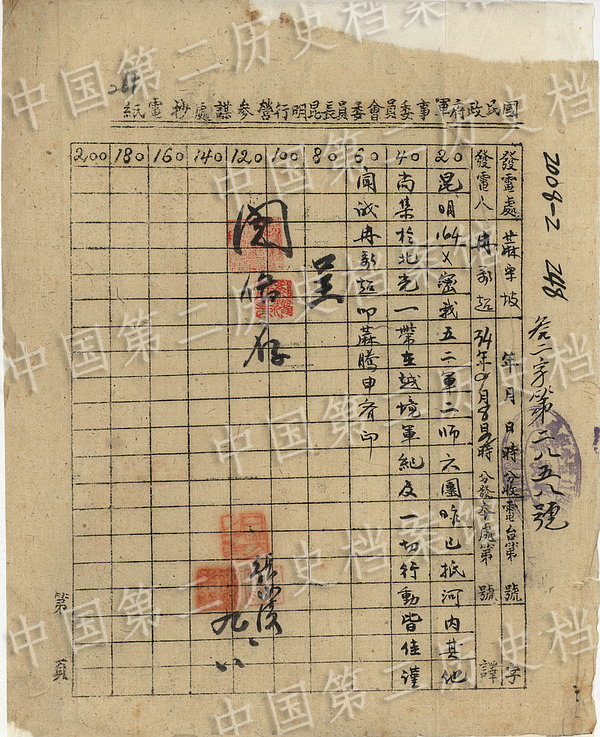 國民政府軍事委員會委員長昆明行營參謀處抄電紙
2008-2 248
叁二字第二八五八號
20 40 60 80 100 120 140 160 180 200
發電處 蔴栗坡 年月日時分收電台第 號 字
發電人 冉 34年9月8日時 分發本處第 號 譯
昆明164X密我五二軍二師六團昨已抵河內其他
尚集於北光一帶在越境軍紀及一切行動皆佳謹
聞 冉 叩蔴 申齊印
呈
閱 存
九、八
第 頁
中国第二历史档案馆